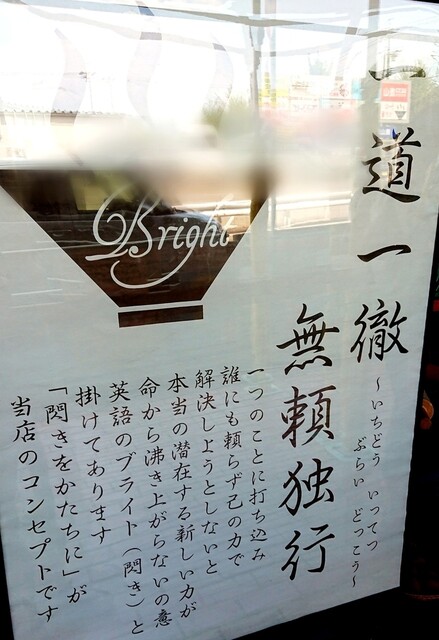 一道一徹
無頼独行
～いちどう いってつ
ぶらい どっこう～
Bright
一つのことに打ち込み
誰にも頼らず己の力で
解決しようとしないと
本当の潜在する新しい力が
命から沸き上がらないの意
英語のブライト（閃き）と
掛けてあります
「閃きをかたちに」が
当店のコンセプトです